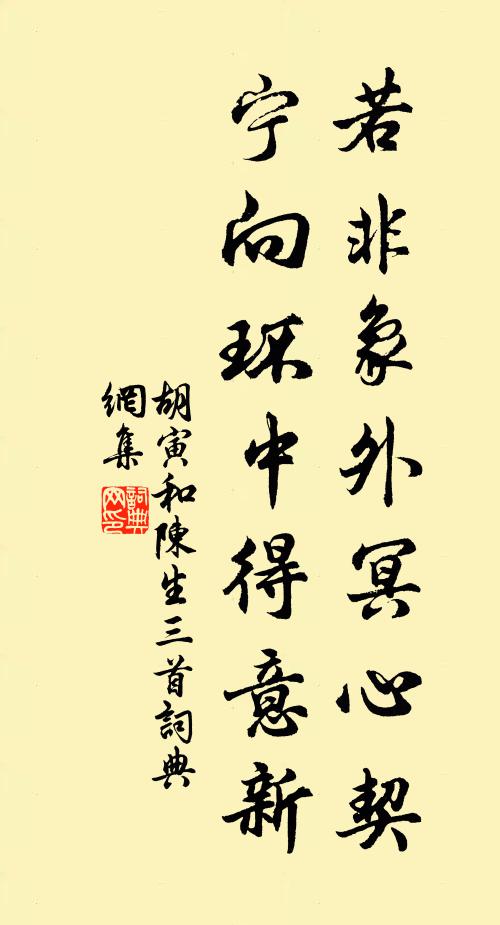 若非象外冥心契
宁向环中得意新
胡寅和陳生三首詞典
網集
詞典
网印